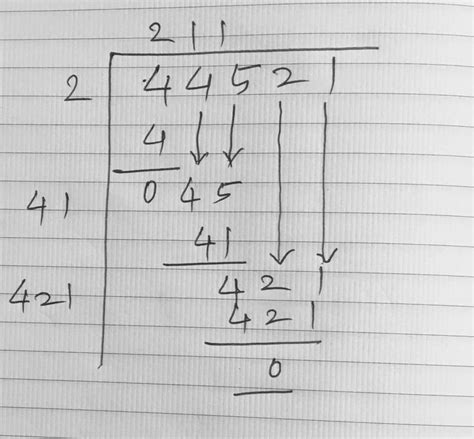 211
2 44521
4
41 045
41
421 421
421
0